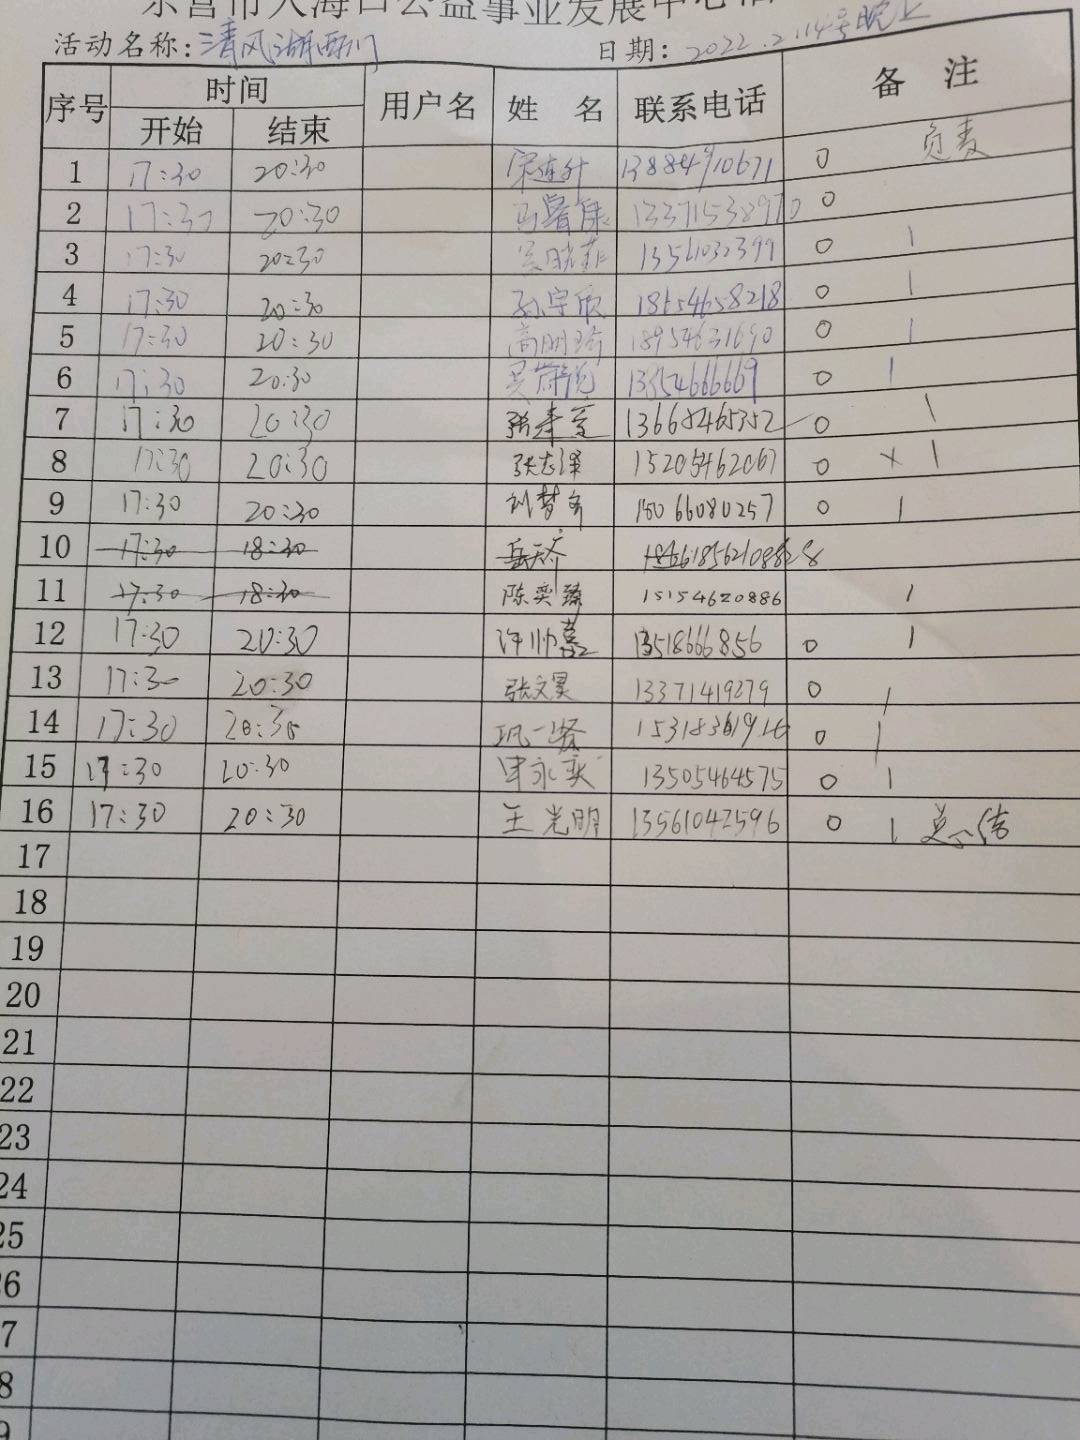 东营市入海口公益事业发展中心
活动名称：清风湖西门 日期：2022.2.14号晚上
序号 时间 用户名 姓 名 联系电话 备 注
开始 结束
1 17:30 20:30 宋连升 13884910671 0 负责
2 17:30 20:30 13371538970 0
3 17:30 20:30 吴晓菲 13561032399 0 1
4 17:30 20:30 孙宇欣 18554658218 0 1
5 17:30 20:30 高明琦 18954631690 0 1
6 17:30 20:30 13354666669 0 1
7 17:30 20:30 13668465352 0 1
8 17:30 20:30 张志泽 15205462067 0 × 1
9 17:30 20:30 刘梦奇 15066080257 0 1
10 17:30 18:30 岳天齐
11 17:30 18:30 陈奕臻 15154620886 1
12 17:30 20:30 许帅 13518666856 0 1
13 17:30 20:30 张文昊 13371419279 0 1
14 17:30 20:30 巩一 0 1
15 17:30 20:30 永奕 13505464575 0 1
16 17:30 20:30 王光明 13561042596 0 1 总结
17
18
19
20
21
22
23
24
25
26
7
8
9